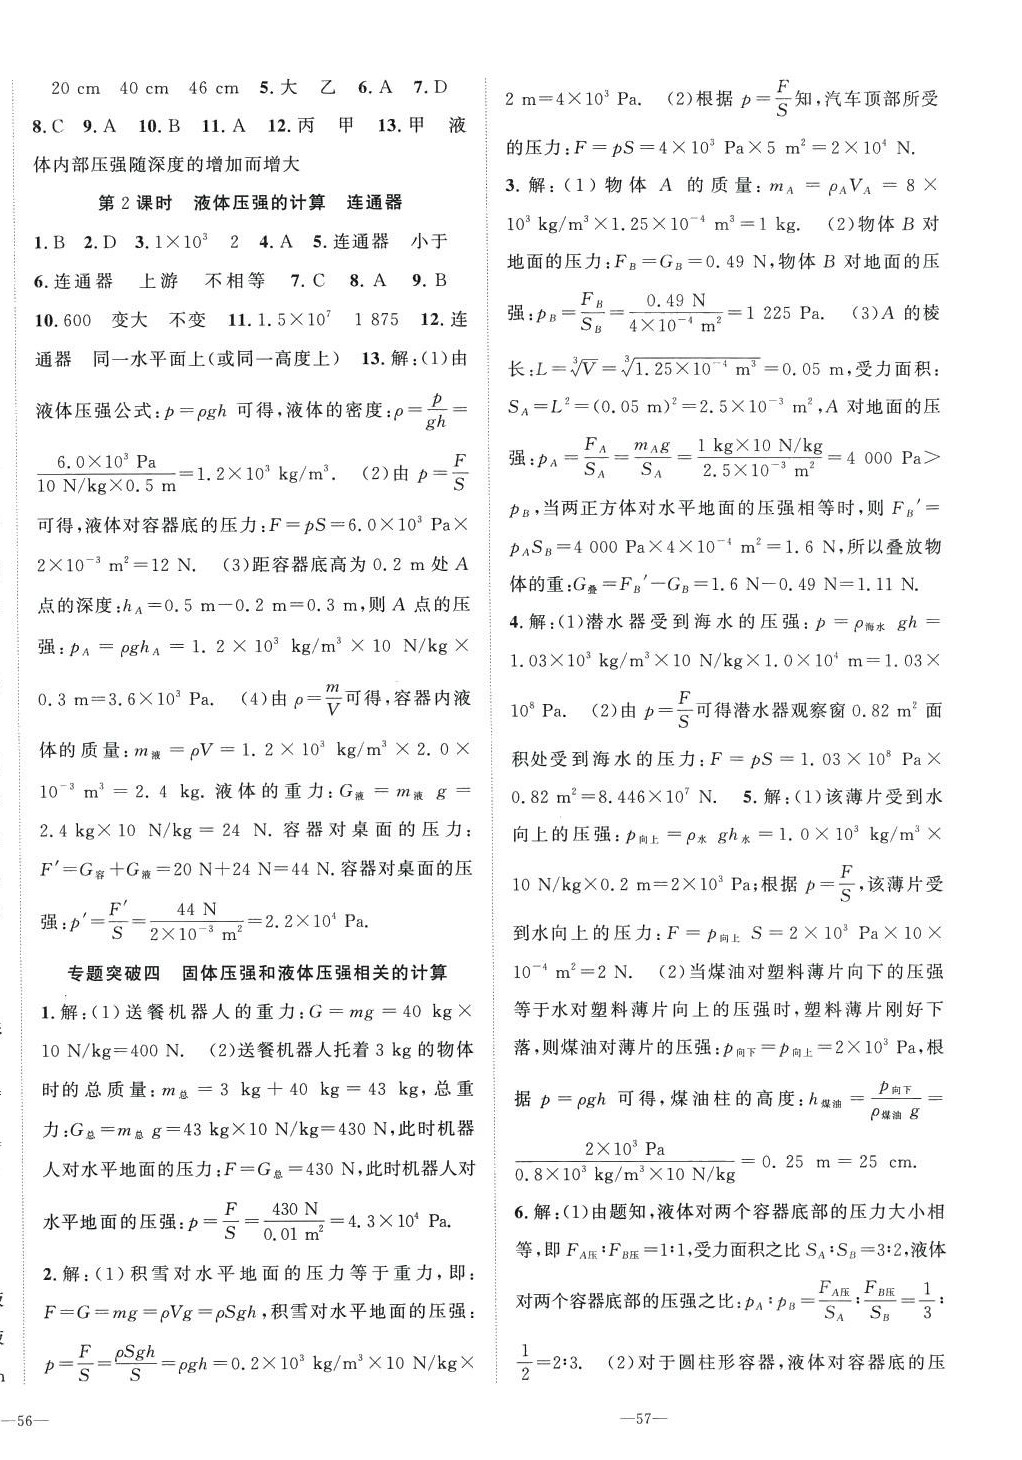 20 cm 40 cm 46 cm 5.大 乙 6.A 7.D
8.C 9.A 10.B 11.A 12.丙 甲 13.甲 液
体内部压强随深度的增加而增大
第2课时 液体压强的计算 连通器
1.B 2.D 3.1×10³ 2 4.A 5.连通器 小于
6.连通器 上游 不相等 7.C 8.A 9.B
10.600 变大 不变 11.1.5×10⁷ 1 875 12.连
通器 同一水平面上(或同一高度上) 13.解:(1)由
液体压强公式:p=ρgh 可得,液体的密度:ρ=p/gh=
6.0×10³ Pa/(10 N/kg×0.5 m)=1.2×10³ kg/m³. (2)由 p=F/S
可得,液体对容器底的压力:F=pS=6.0×10³ Pa×
2×10⁻³ m²=12 N. (3)距容器底高为 0.2 m 处 A
点的深度:h_A=0.5 m−0.2 m=0.3 m,则 A 点的压
强:p_A=ρgh_A=1.2×10³ kg/m³×10 N/kg×
0.3 m=3.6×10³ Pa. (4)由 ρ=m/V可得,容器内液
体的质量:m液=ρV=1.2×10³ kg/m³×2.0×
10⁻³ m³=2.4 kg.液体的重力:G液=m液 g=
2.4 kg×10 N/kg=24 N.容器对桌面的压力:
F′=G容+G液=20 N+24 N=44 N.容器对桌面的压
强:p′=F′/S=44 N/(2×10⁻³ m²)=2.2×10⁴ Pa.
专题突破四 固体压强和液体压强相关的计算
1.解:(1)送餐机器人的重力:G=mg=40 kg×
10 N/kg=400 N. (2)送餐机器人托着 3 kg 的物体
时的总质量:m总=3 kg+40 kg=43 kg,总重
力:G总=m总 g=43 kg×10 N/kg=430 N,此时机器
人对水平地面的压力:F=G总=430 N,此时机器人对
水平地面的压强:p=F/S=430 N/0.01 m²=4.3×10⁴ Pa.
2.解:(1)积雪对水平地面的压力等于重力,即:
F=G=mg=ρVg=ρSgh,积雪对水平地面的压强:
p=F/S=ρSgh/S=ρgh=0.2×10³ kg/m³×10 N/kg×
—56—
2 m=4×10³ Pa. (2)根据 p=F/S知,汽车顶部所受
的压力:F=pS=4×10³ Pa×5 m²=2×10⁴ N.
3.解:(1)物体 A 的质量:m_A=ρ_AV_A=8×
10³ kg/m³×1.25×10⁻⁴ m³=1 kg. (2)物体 B 对
地面的压力:F_B=G_B=0.49 N,物体 B 对地面的压
强:p_B=F_B/S_B=0.49 N/(4×10⁻⁴ m²)=1 225 Pa. (3)A 的棱
长:L=∛V=∛(1.25×10⁻⁴ m³)=0.05 m,受力面积:
S_A=L²=(0.05 m)²=2.5×10⁻³ m²,A 对地面的压
强:p_A=F_A/S_A=m_Ag/S_A=(1 kg×10 N/kg)/(2.5×10⁻³ m²)=4 000 Pa>
p_B,当两正方体对水平地面的压强相等时,则 F_B′=
p_AS_B=4 000 Pa×4×10⁻⁴ m²=1.6 N,所以叠放物
体的重:G叠=F_B′−G_B=1.6 N−0.49 N=1.11 N.
4.解:(1)潜水器受到海水的压强:p=ρ海水 gh=
1.03×10³ kg/m³×10 N/kg×1.0×10⁴ m=1.03×
10⁸ Pa. (2)由 p=F/S可得潜水器观察窗 0.82 m² 面
积处受到海水的压力:F=pS=1.03×10⁸ Pa×
0.82 m²=8.446×10⁷ N. 5.解:(1)该薄片受到水
向上的压强:p向上=ρ水 gh水=1.0×10³ kg/m³×
10 N/kg×0.2 m=2×10³ Pa;根据 p=F/S,该薄片受
到水向上的压力:F=p向上 S=2×10³ Pa×10×
10⁻⁴ m²=2 N. (2)当煤油对塑料薄片向下的压强
等于水对塑料薄片向上的压强时,塑料薄片刚好下
落,则煤油对薄片的压强:p向下=p向上=2×10³ Pa,根
据 p=ρgh 可得,煤油柱的高度:h煤油=p向下/(ρ煤油 g)=
2×10³ Pa/(0.8×10³ kg/m³×10 N/kg)=0.25 m=25 cm.
6.解:(1)由题知,液体对两个容器底部的压力大小相
等,即 F_A压∶F_B压=1∶1,受力面积之比 S_A∶S_B=3∶2,液体
对两个容器底部的压强之比:p_A∶p_B=F_A压/S_A∶F_B压/S_B=1/3∶
1/2=2∶3. (2)对于圆柱形容器,液体对容器底的压
—57—